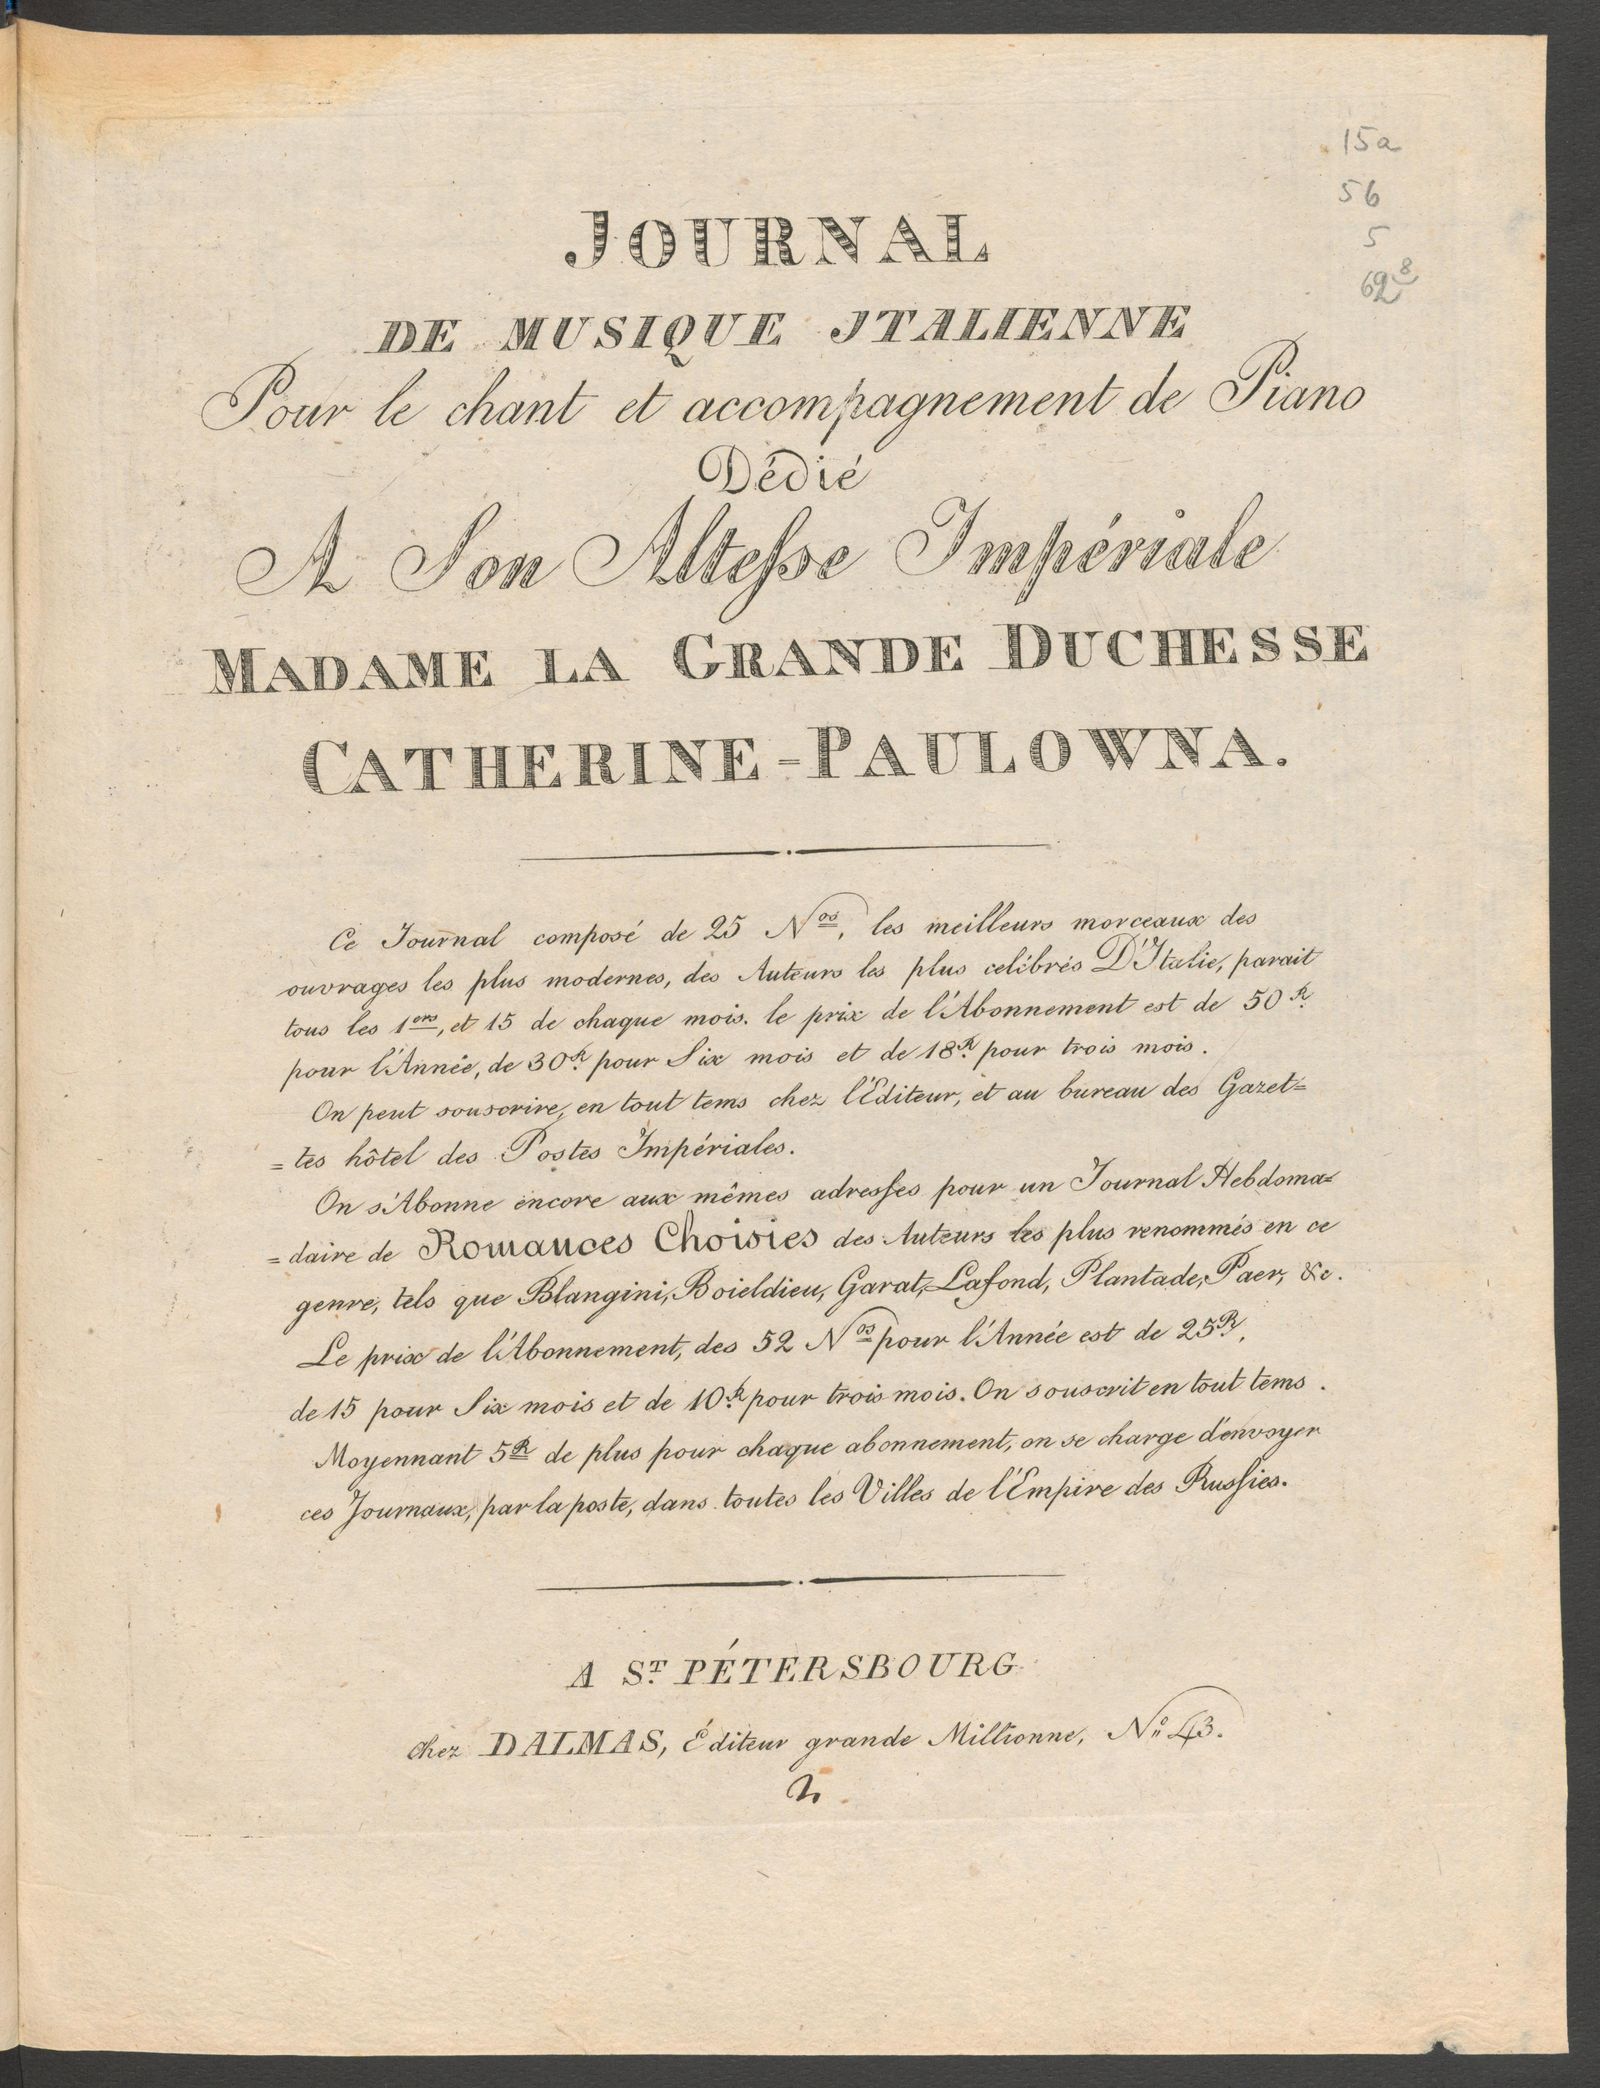 15a
56
5
JOURNAL
DE MUSIQUE JTALIENNE
Pour le chant et accompagnement de Piano
Dédié
A Son Altesse Impériale
MADAME LA GRANDE DUCHESSE
CATHERINE-PAULOWNA.
Ce Journal composé de 25 Nos, les meilleurs morceaux des
ouvrages les plus modernes, des Auteurs les plus celébrés D'Italie, parait
tous les 1ers, et 15 de chaque mois. le prix de l'Abonnement est de 50 R.
pour l'Année, de 30R. pour Six mois et de 18R. pour trois mois.
On peut souscrire, en tout tems chez l'Editeur, et au bureau des Gazet=
=tes hôtel des Postes Impériales.
On s'Abonne encore aux mêmes adresses pour un Journal Hebdoma=
=daire de Romances Choisies des Auteurs les plus renommés en ce
genre, tels que Blangini, Boieldieu, Garat, Lafond, Plantade, Paer, &c.
Le prix de l'Abonnement, des 52 Nos pour l'Année est de 25R,
de 15 pour Six mois et de 10R. pour trois mois. On souscrit en tout tems.
Moyennant 5R de plus pour chaque abonnement, on se charge d'envoyer
ces Journaux, par la poste, dans toutes les Villes de l'Empire des Russies.
A ST. PÉTERSBOURG
chez DALMAS, Éditeur grande Millionne, No 43.
2.